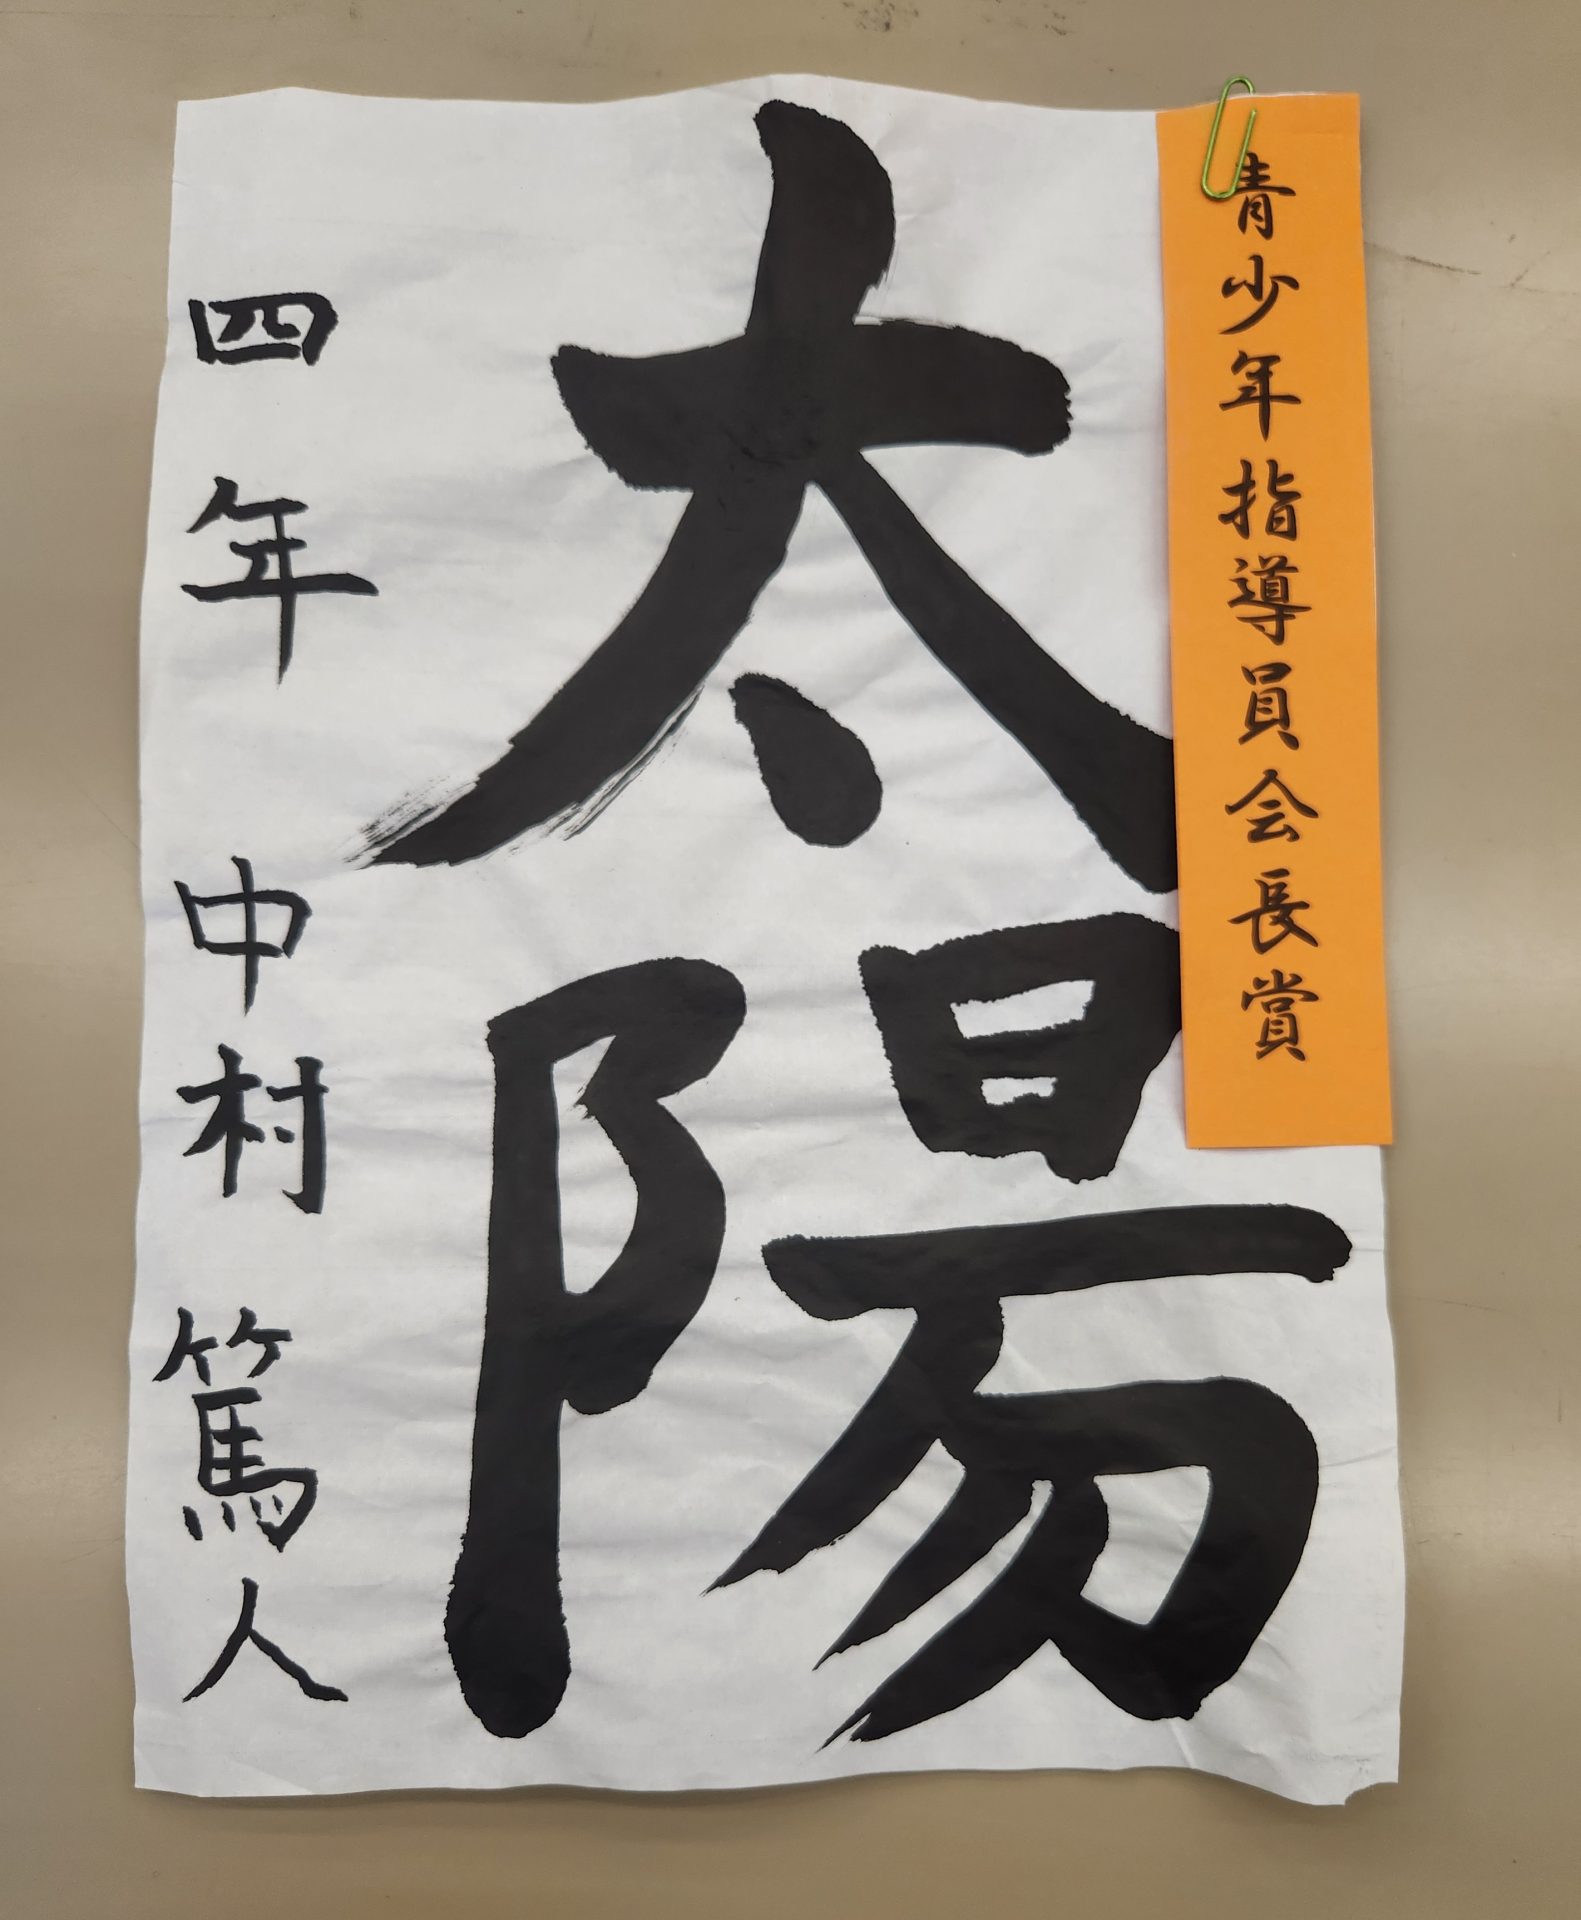 青少年指導員会長賞
太陽
四年 中村 篤人